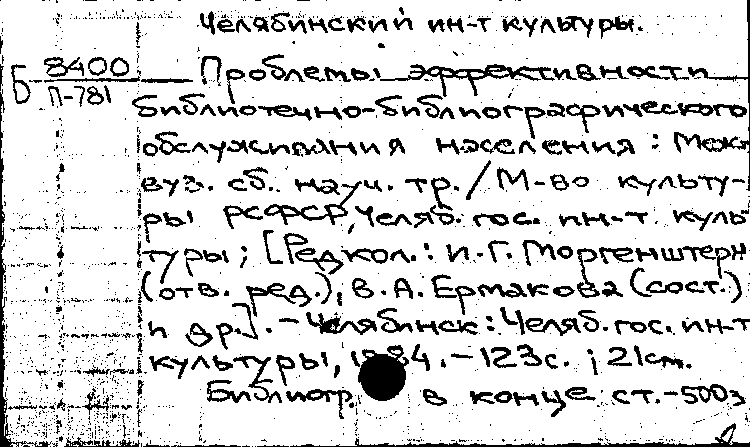 Челябинский ин-т культуры.
Б 8400
П-781
Проблемы эффективности
библиотечно-библиографического
обслуживания населения : Меж-
вуз. сб. науч. тр. / М-во культу-
ры РСФСР, Челяб. гос. ин-т куль
туры ; [Редкол.: И.Г. Моргенштерн
(отв. ред.), В.А. Ермакова (сост.)
и др.]. - Челябинск : Челяб. гос. ин-т
культуры, 1984. - 123с. ; 21см.
Библиогр. в конце ст. - 500э